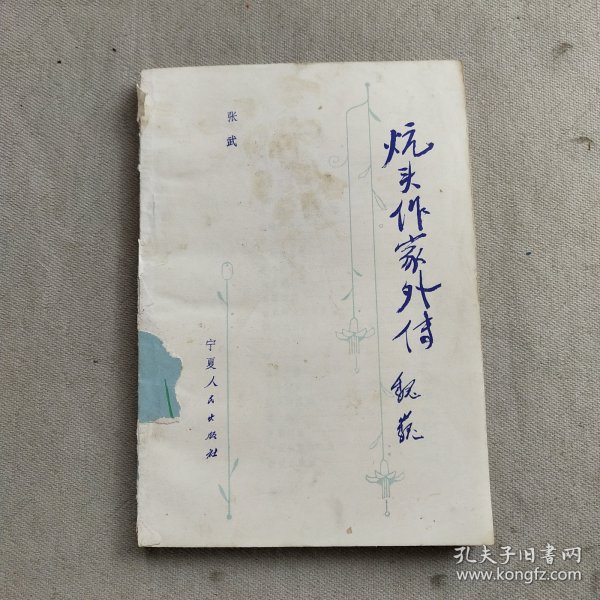 炕头作家外传
魏巍
张武
宁夏人民出版社
孔夫子旧书网
www.kongfz.com